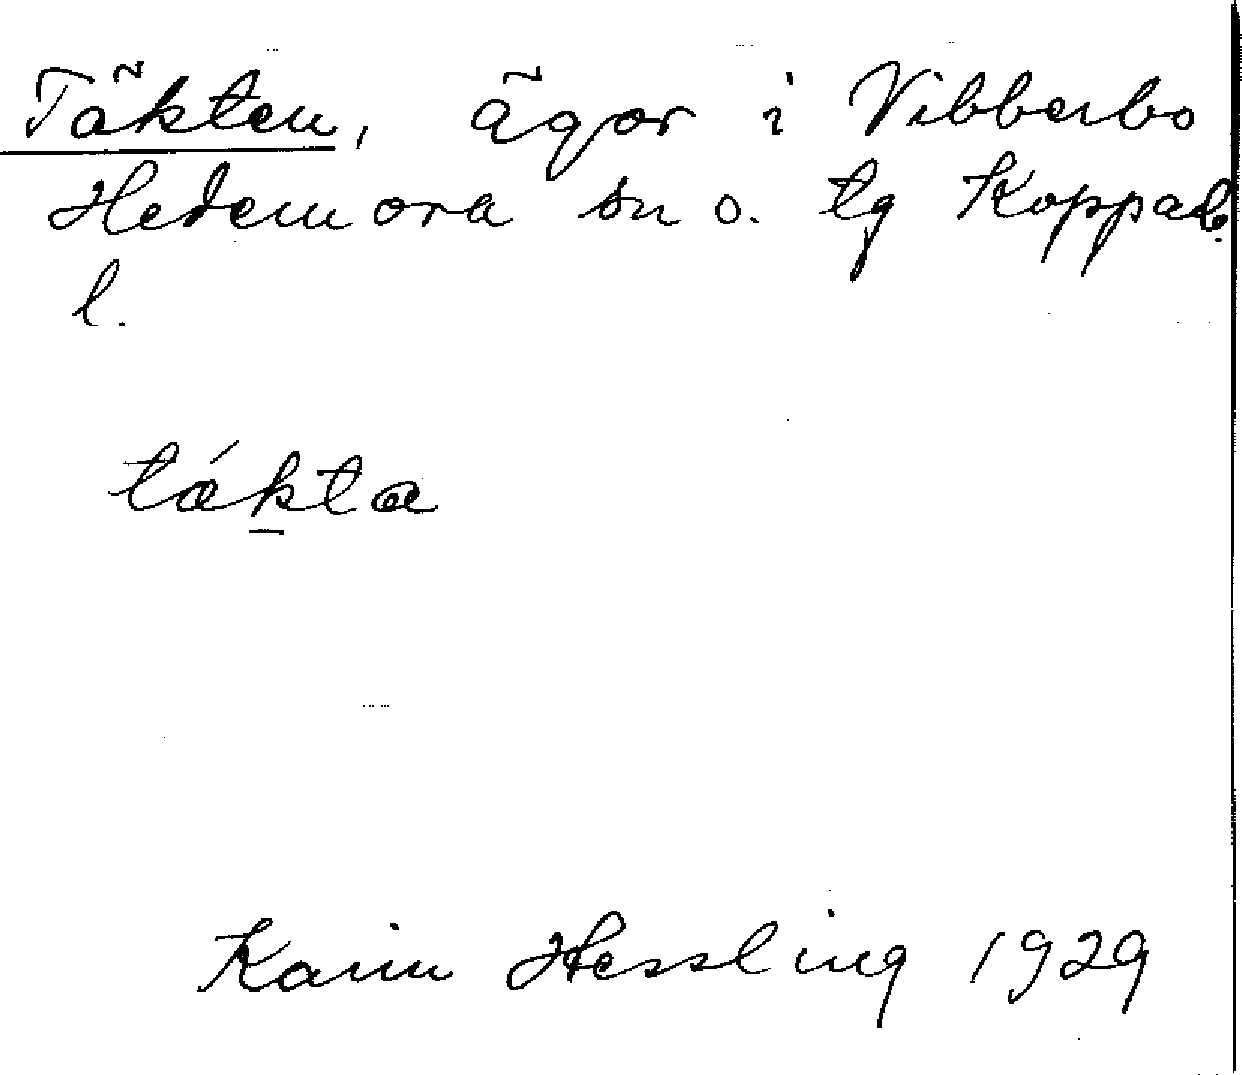 Täkten, ägor i Vibberbo
Hedemora sn o. tg Koppab.
l.
tǽk̠ta
Karin Hessling 1929